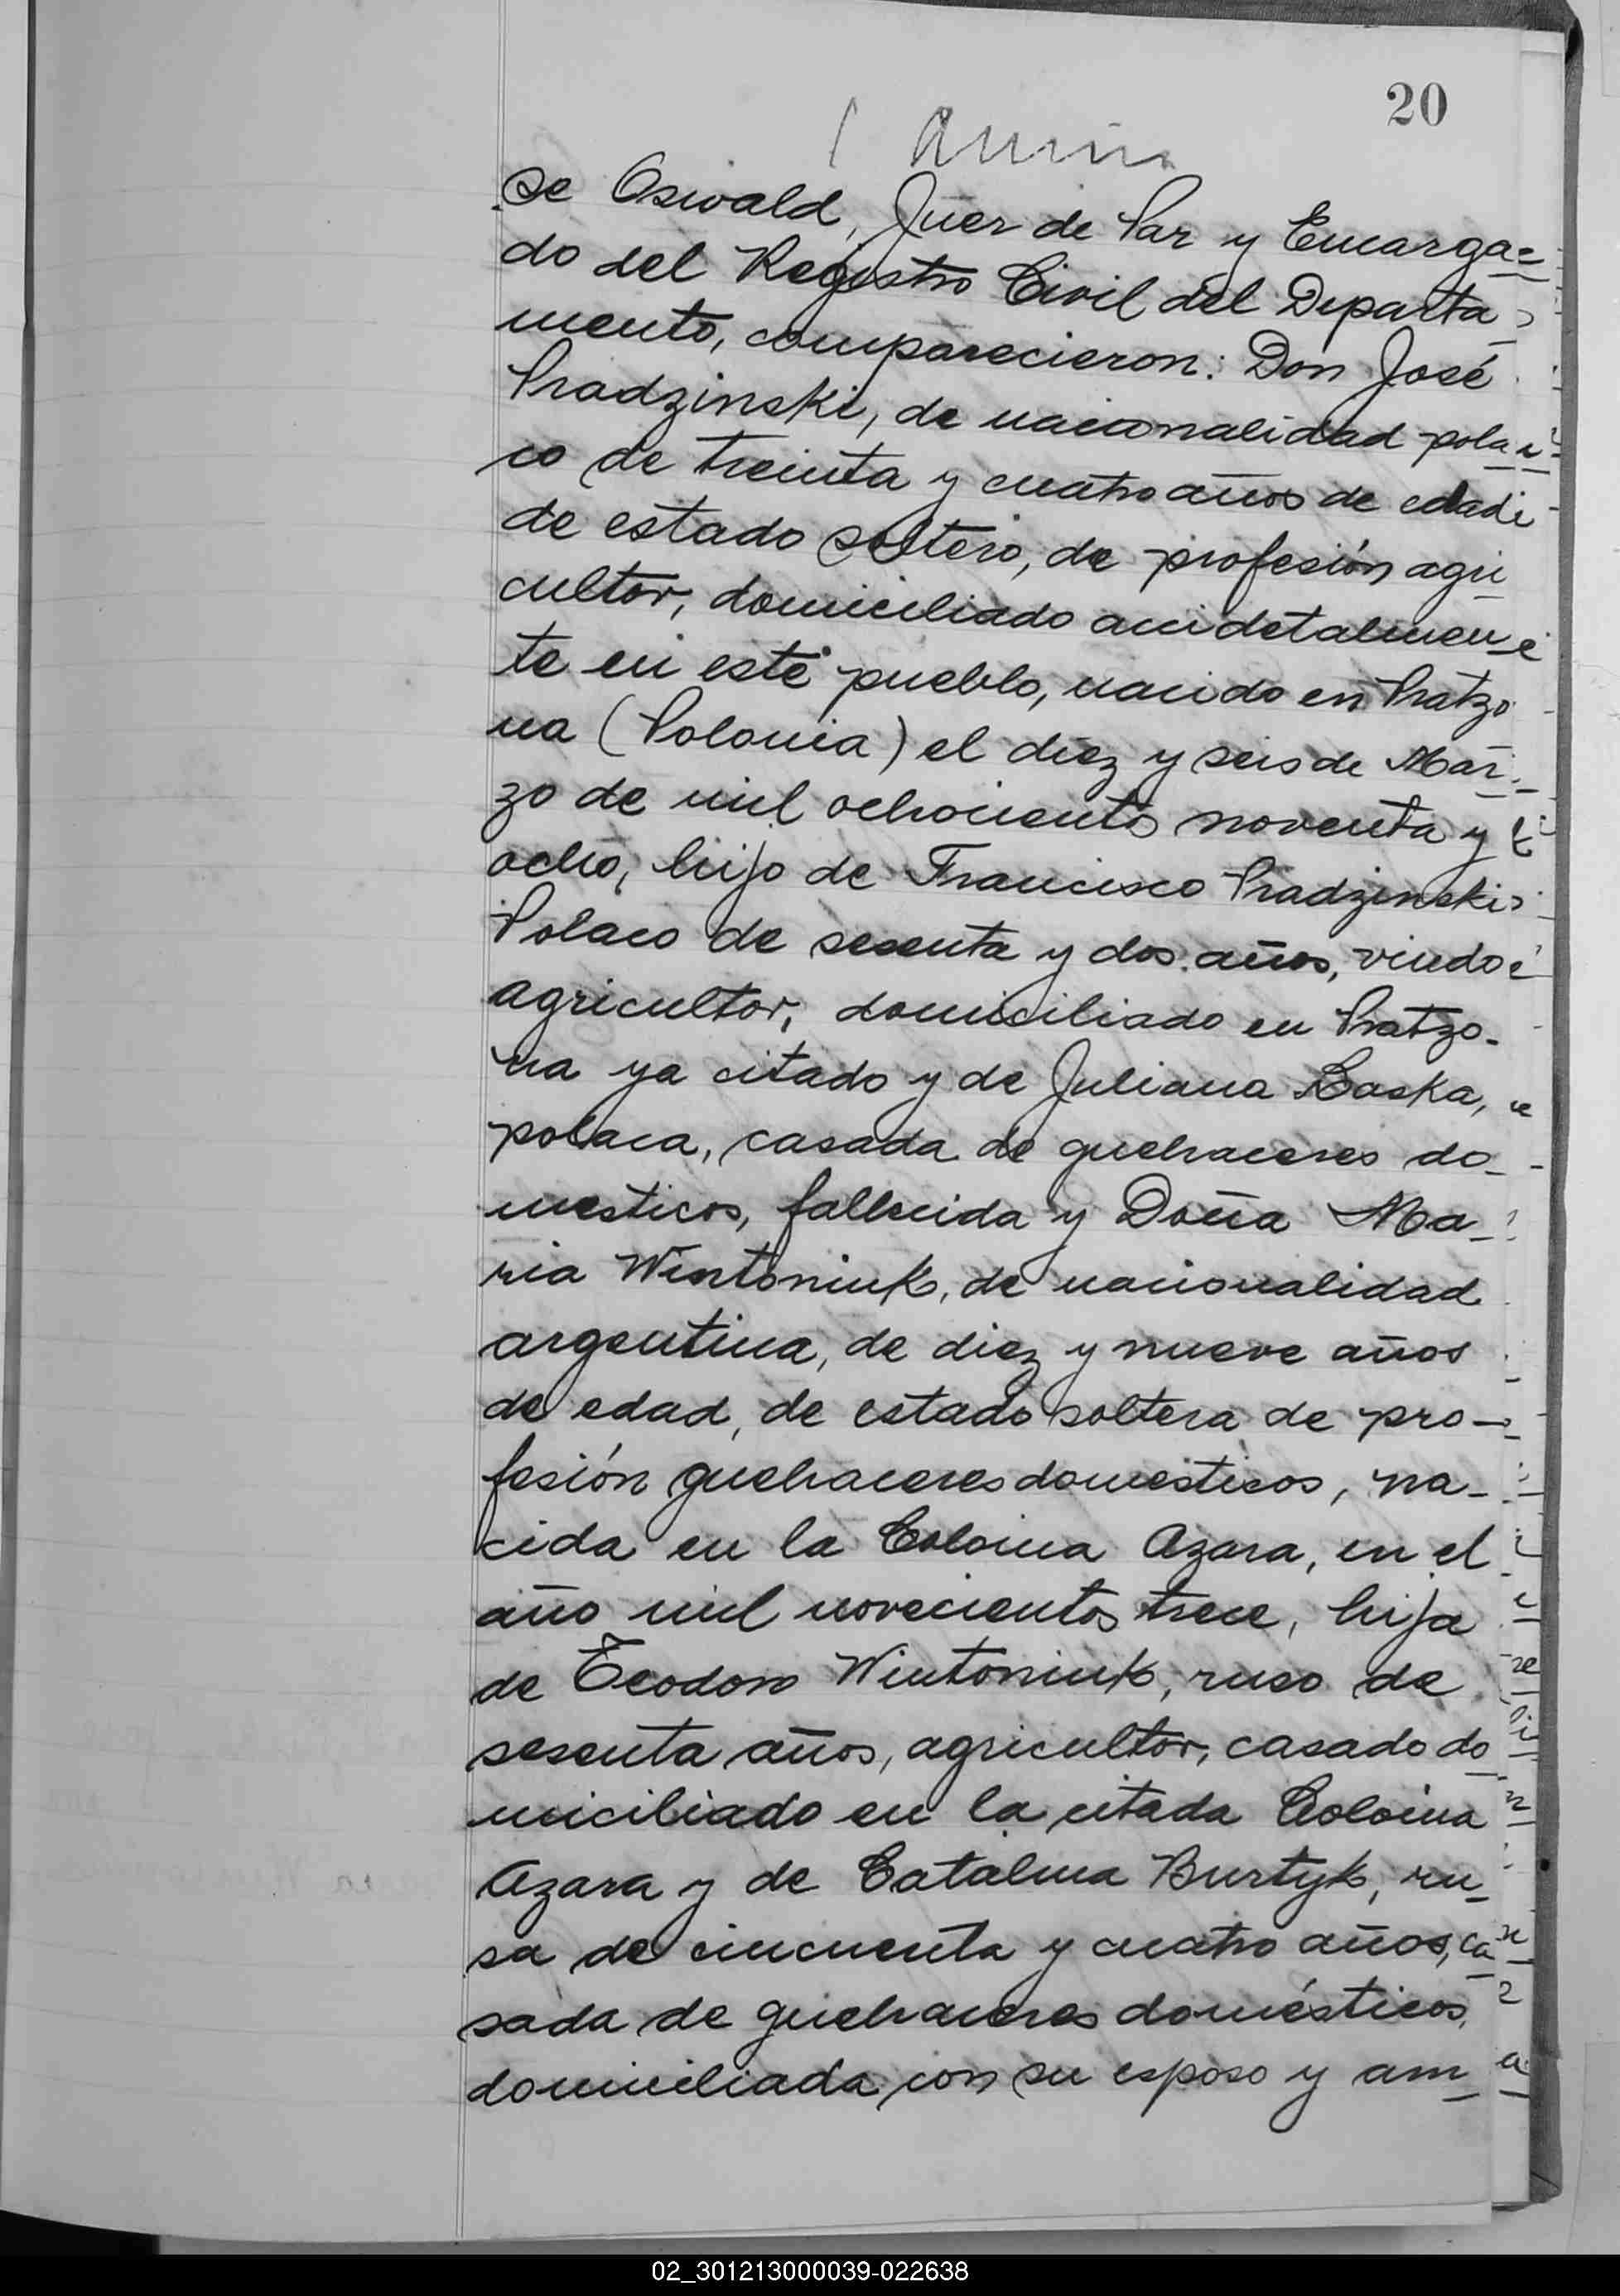 20
se Oswald, Juez de Paz y Encarga=
do del Registro Civil del Departa
mento, comparecieron: Don José
Pradzinski, de nacionalidad pola
co de treinta y cuatro años de edad
de estado soltero, de profesión agri
cultor, domiciliado accidetalmen
te en este pueblo, nacido en Pratzo
na (Polonia) el diez y seis de Mar
zo de mil ochocientos noventa y
ocho, hijo de Francisco Pradzinski
Polaco de sesenta y dos años, viudo
agricultor, domiciliado en Pratzo-
na ya citado y de Juliana Laska,
polaca, casada de quehaceres do-
mesticos, fallecida y Doña Ma-
ria Wintoniuk, de nacionalidad
argentina, de diez y nueve años
de edad, de estado soltera de pro-
fesión quehaceres domesticos, na-
cida en la Colonia Azara, en el
año mil novecientos trece, hija
de Teodoro Wintoniuk, ruso de
sesenta años, agricultor, casado do
miciliado en la citada Colonia
Azara y de Catalina Burtyk, ru-
sa de cincuenta y cuatro años, ca
sada de quehaceres domésticos,
domiciliada con su esposo y am
02_301213000039-022638